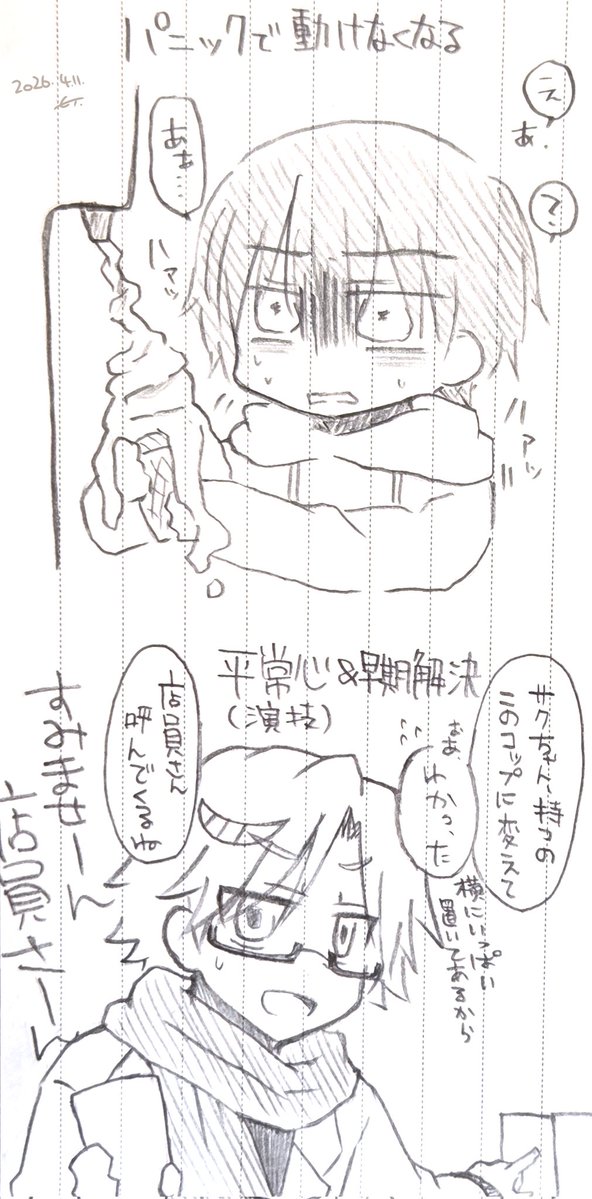 パニックで動けなくなる
2026.4.11.
え
あ、
で、
あぁ…
ハァッ
ハァッ
平常心&早期解決
(演技)
サクちゃん、持つの
このコップに変えて
なぁ、
わかった
横にいっぱい
置いてあるから
店員さん
呼んでくるね
すみませーん
店員さーん